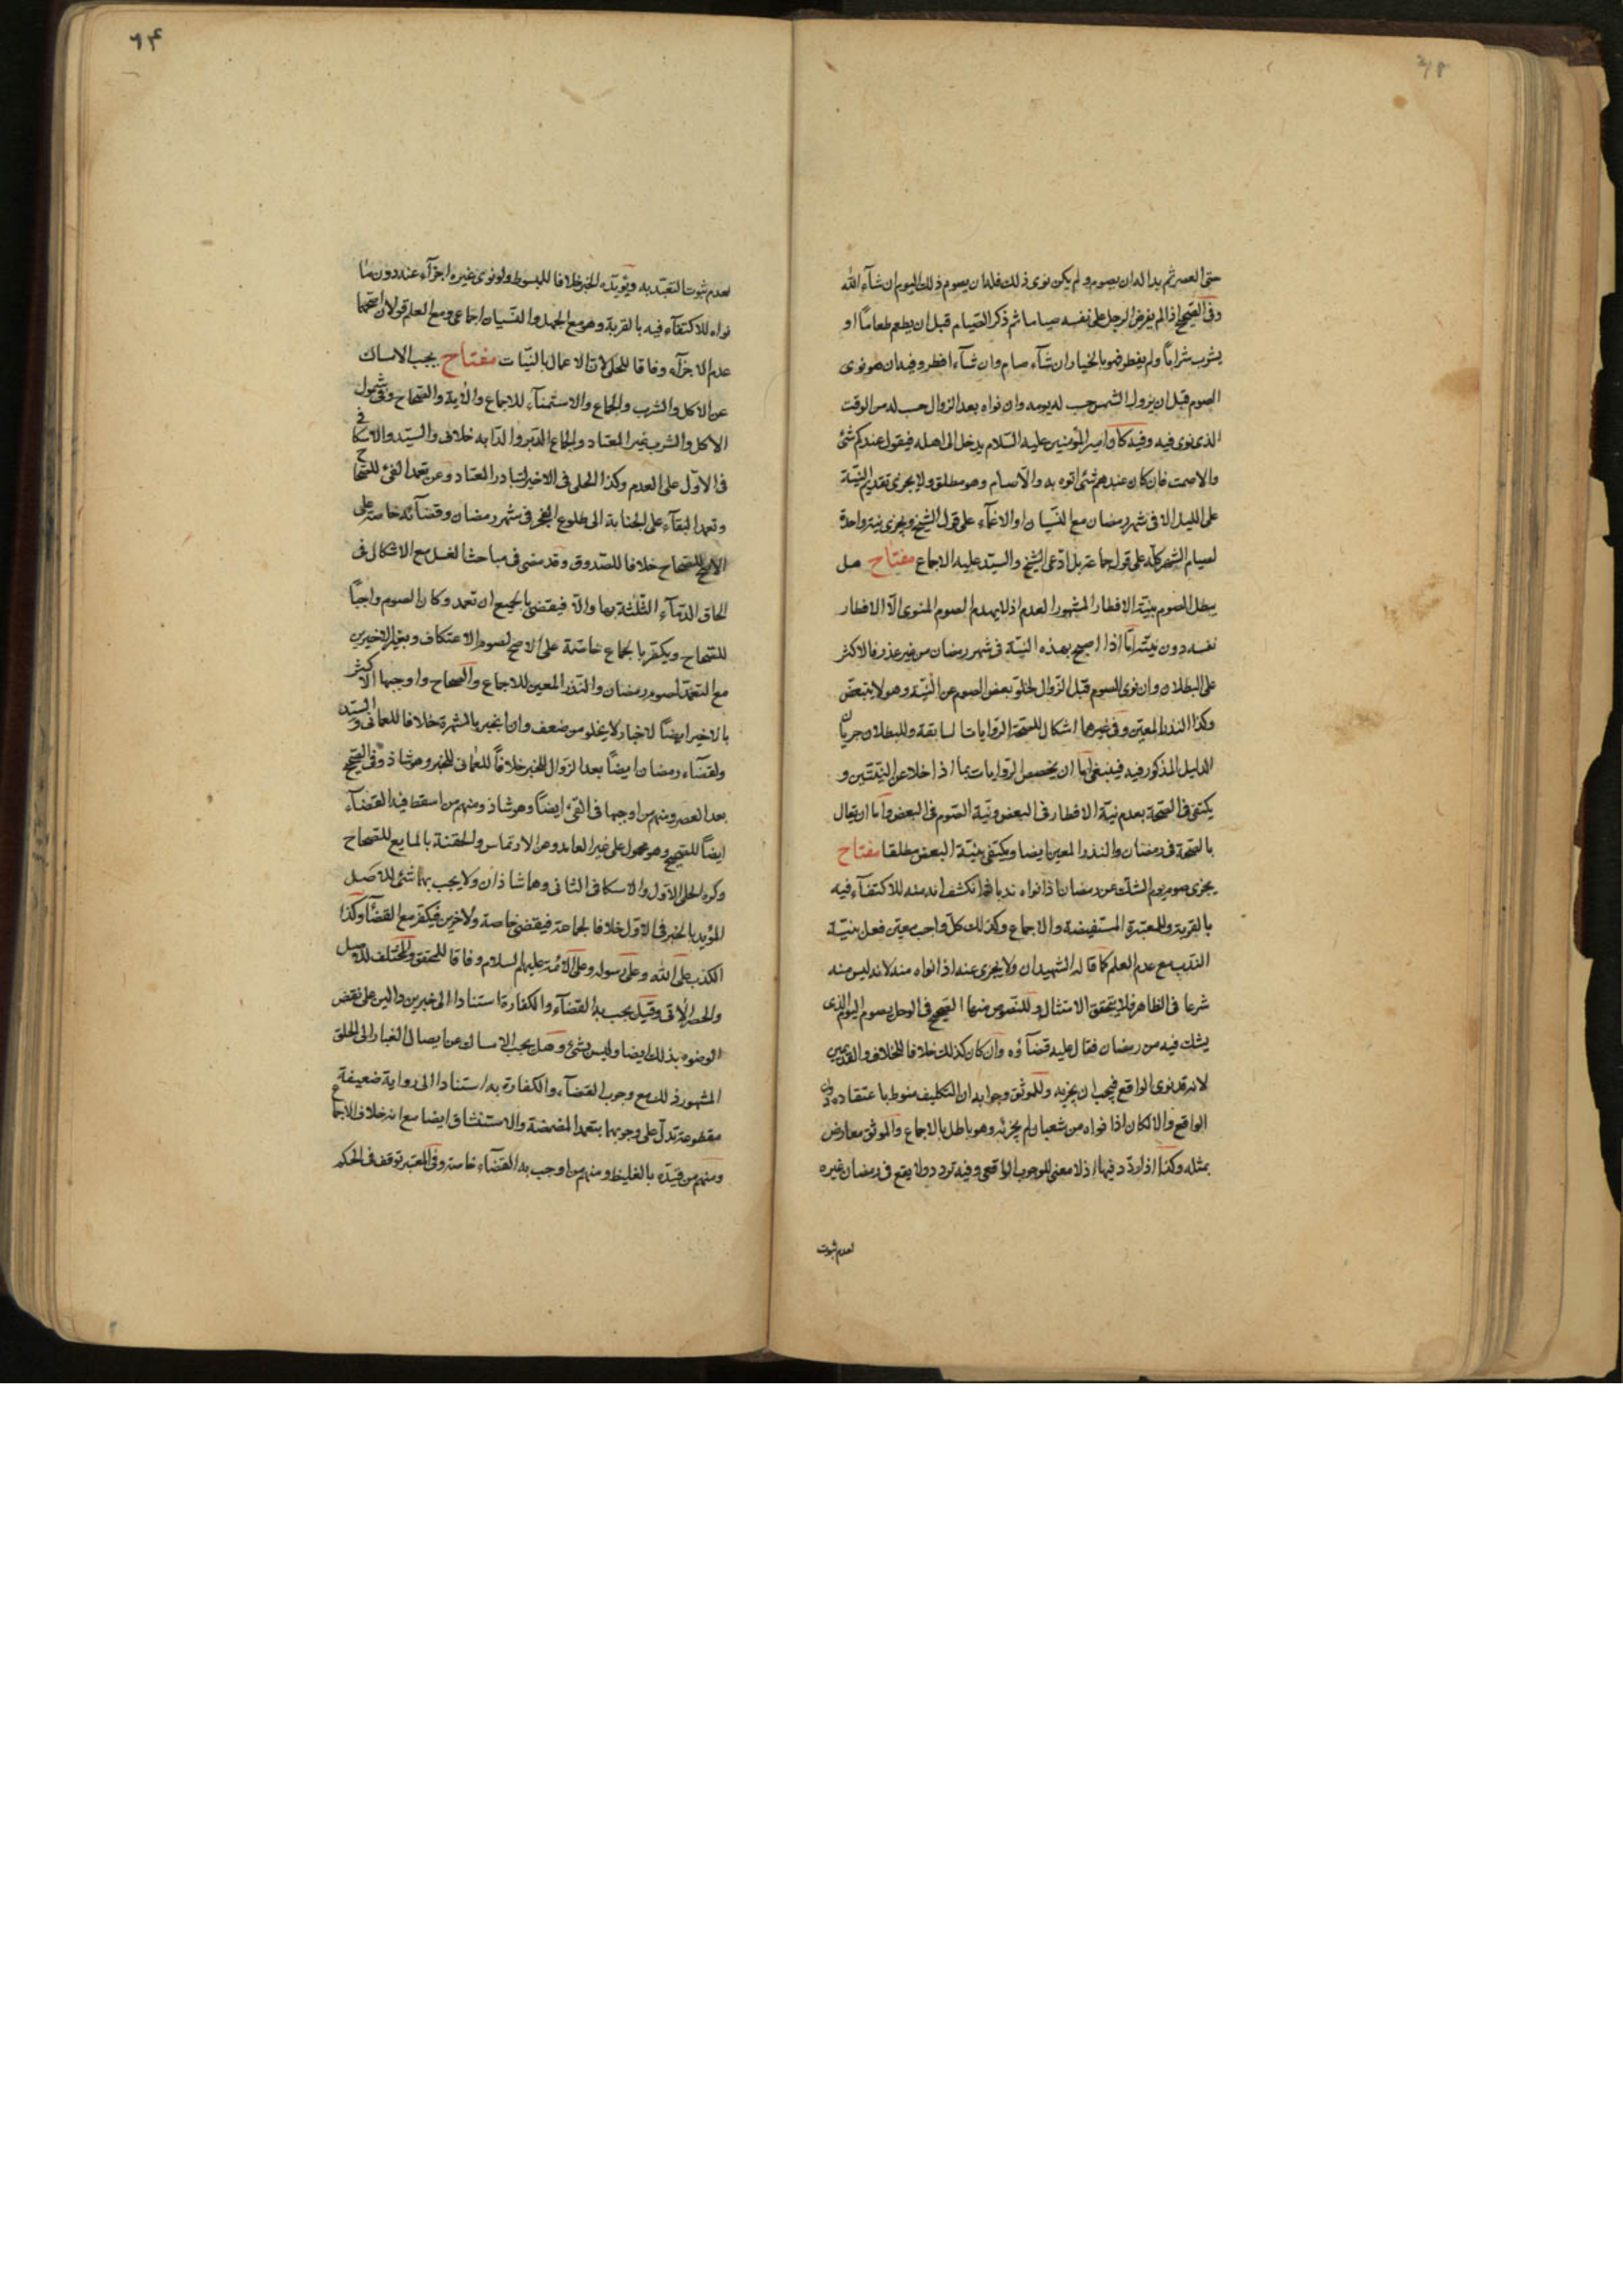 حتى العصر ثم بدا له ان يصوم و لم يكن نوى ذلك فله ان يصوم ذلك اليوم ان شآء الله
وفى الصحيح اذا لم يفرض الرجل على نفسه صياما ثم ذكر الصيام قبل ان يطعم طعاماً او
يشرب شراباً ولم يفطر فهو بالخيار ان شآء صام وان شآء افطر وفيه ان هو نوى
الصوم قبل ان يزول الشمس حسب له يومه وان نواه بعد الزوال حسب له من الوقت
الذى نوى فيه وفيه كان امير المؤمنين عليه السلام يدخل الى اهله فيقول عندكم شئ
والا صمت فان كان عندهم شئ اتوه به والا صام وهو مطلق ولا يجزى تقديم النيّة
على الليل الا فى شهر رمضان مع النسيان او الاغمآء على قول الشيخ ويجزى نية واحدة
لصيام الشهر كله على قول جماعة بل ادعى الشيخ والسيد عليه الاجماع مفتاح هل
يبطل الصوم بنيّة الافطار المشهور العدم اذ لا يهدم الصوم المنوى الّا الافطار
نفسه دون نيّته امّا اذا اصبح بهذه النيّة فى شهر رمضان من غير عذر فالاكثر
على البطلان وان نوى الصوم قبل الزوال لخلوّ بعض الصوم عن النيّة وهو لا يتبعّض
وكذا النذر المعيّن وفى غيرهما اشكال للصحة الروايات السابقة وللبطلان جريان
الدليل المذكور فيه فينبغى اما ان يخصص الروايات بما اذا خلا عن النيّتين و
يكتفى فى الصحة بعدم نيّة الافطار فى البعض ونيّة الصّوم فى البعض واما ان يقال
بالصحة فى رمضان والنذر المعين ايضا ويكتفى بنيّة البعض مطلقا مفتاح
يجزى صوم يوم الشك عن رمضان اذا نواه ندبا ثم انكشف انه منه للاكتفآء فيه
بالقربة وللمعتبرة المستفيضة والاجماع وكذلك كلّ واجب معيّن فعل بنيّة
الندب مع عدم العلم كما قاله الشهيدان ولا يجزى عنه اذا نواه منه لانه ليس منه
شرعا فى الظاهر فلا يتحقق الامتثال وللنّصوص منها الصحيح فى الرجل يصوم اليوم الذى
يشك فيه من رمضان فقال عليه قضآؤه وان كان كذلك خلافا للخلاف والقديمين
لانه قد نوى الواقع فيجب ان يجزيه وللموثق وجوابه ان التكليف منوط باعتقاده دون
الواقع والا لكان اذا نواه من شعبان لم يجزئه وهو باطل بالاجماع والموثق معارض
بمثله وكذا اذا ردّد فيها اذ لا معنى للوجوب الواقعى وفيه تردد ولا يقع فى رمضان غيره
لعدم ثبوت
لعدم ثبوت التعبّد به ويؤيّده الخبر خلافا للمبسوط ولو نوى غيره اجزآء عنه دون ما
نواه للاكتفآء فيه بالقربة وهو مع الجهل والنسيان اجماعى ومع العلم قولان اصحّهما
عدم الاجزآء وفاقا للحلى لان الاعمال بالنيّات مفتاح يجب الامساك
عن الاكل والشرب والجماع والاستمنآء للاجماع والأية والصحاح وفى شمول
الاكل والشرب غير المعتاد والجماع الدّبر والدّابه خلاف والسيّد والاسكافى
فى الاوّل على العدم وكذا الحلى فى الاخير لتبادر المعتاد وعن تعمد القئ للصحاح
وتعمد البقآء على الجنابة الى طلوع الفجر فى شهر رمضان وقضآئه خاصة على
الاصح للصحاح خلافا للصدوق وقد مضى فى مباحث الغسل مع الاشكال فى
الحاق الدّمآء الثّلثة بها والّا فيقضى بالجميع ان تعمد وكان الصوم واجباً
للصّحاح ويكفّر بالجماع خاصّة على الاصح لصوم الاعتكاف وبغير الاخيرين
مع التعمّد لصوم رمضان والنّذر المعين للاجماع والصحاح واوجبها الاكثر
بالاخير ايضاً لاخبار لا يخلو من ضعف وان انجبر بالشهرة خلافا للعمانى والسيّد
ولقضآء رمضان ايضاً بعد الزوال للخبر خلافاً للعمانى للخبر وهو شاذ وفى الصحيح
بعد العصر ومنهم من اوجبها فى القئ ايضاً وهو شاذ ومنهم من اسقط فيه القضآء
ايضاً للصحيح وهو محمول على غير العامد وعن الارتماس والحقنة بالمايع للصحاح
وكره الحلى الاول والاسكافى الثانى وهما شاذان ولا يجب بهما شئ للاصل
المؤيد بالخبر فى الاوّل خلافا لجماعة فيقضى خاصة ولاخرين فيكفر مع القضآء وكذا
الكذب على الله وعلى رسوله وعلى الائمة عليهم السلام وفاقا للمحقق والمختلف للاصل
والحصر الاتى وقيل يجب به القضآء والكفارة استنادا الى خبرين دالين على نقض
الوضوء بذلك ايضا وليس بشئ وهل يجب الامساك عن ايصال الغبار الى الحلق
المشهور ذلك مع وجوب القضآء والكفارة به استنادا الى رواية ضعيفة
مقطوعة تدلّ على وجوبهما بتعمد المضمضة والاستنشاق ايضا مع انه خلاف الاجماع
ومنهم من قيّده بالغليظ ومنهم من اوجب به القضآء خاصة وفى المعتبر توقف فى الحكم